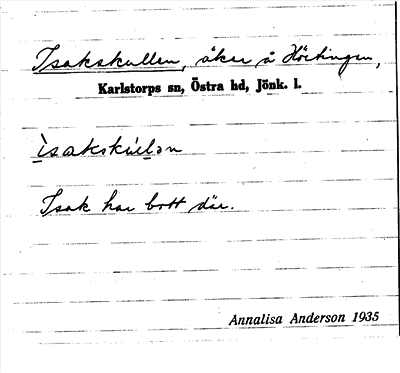 Isakskullen, åker å Höckingen,
Karlstorps sn, Östra hd, Jönk. l.
ìsakskúllən
Isak har bott där.
Annalisa Anderson 1935